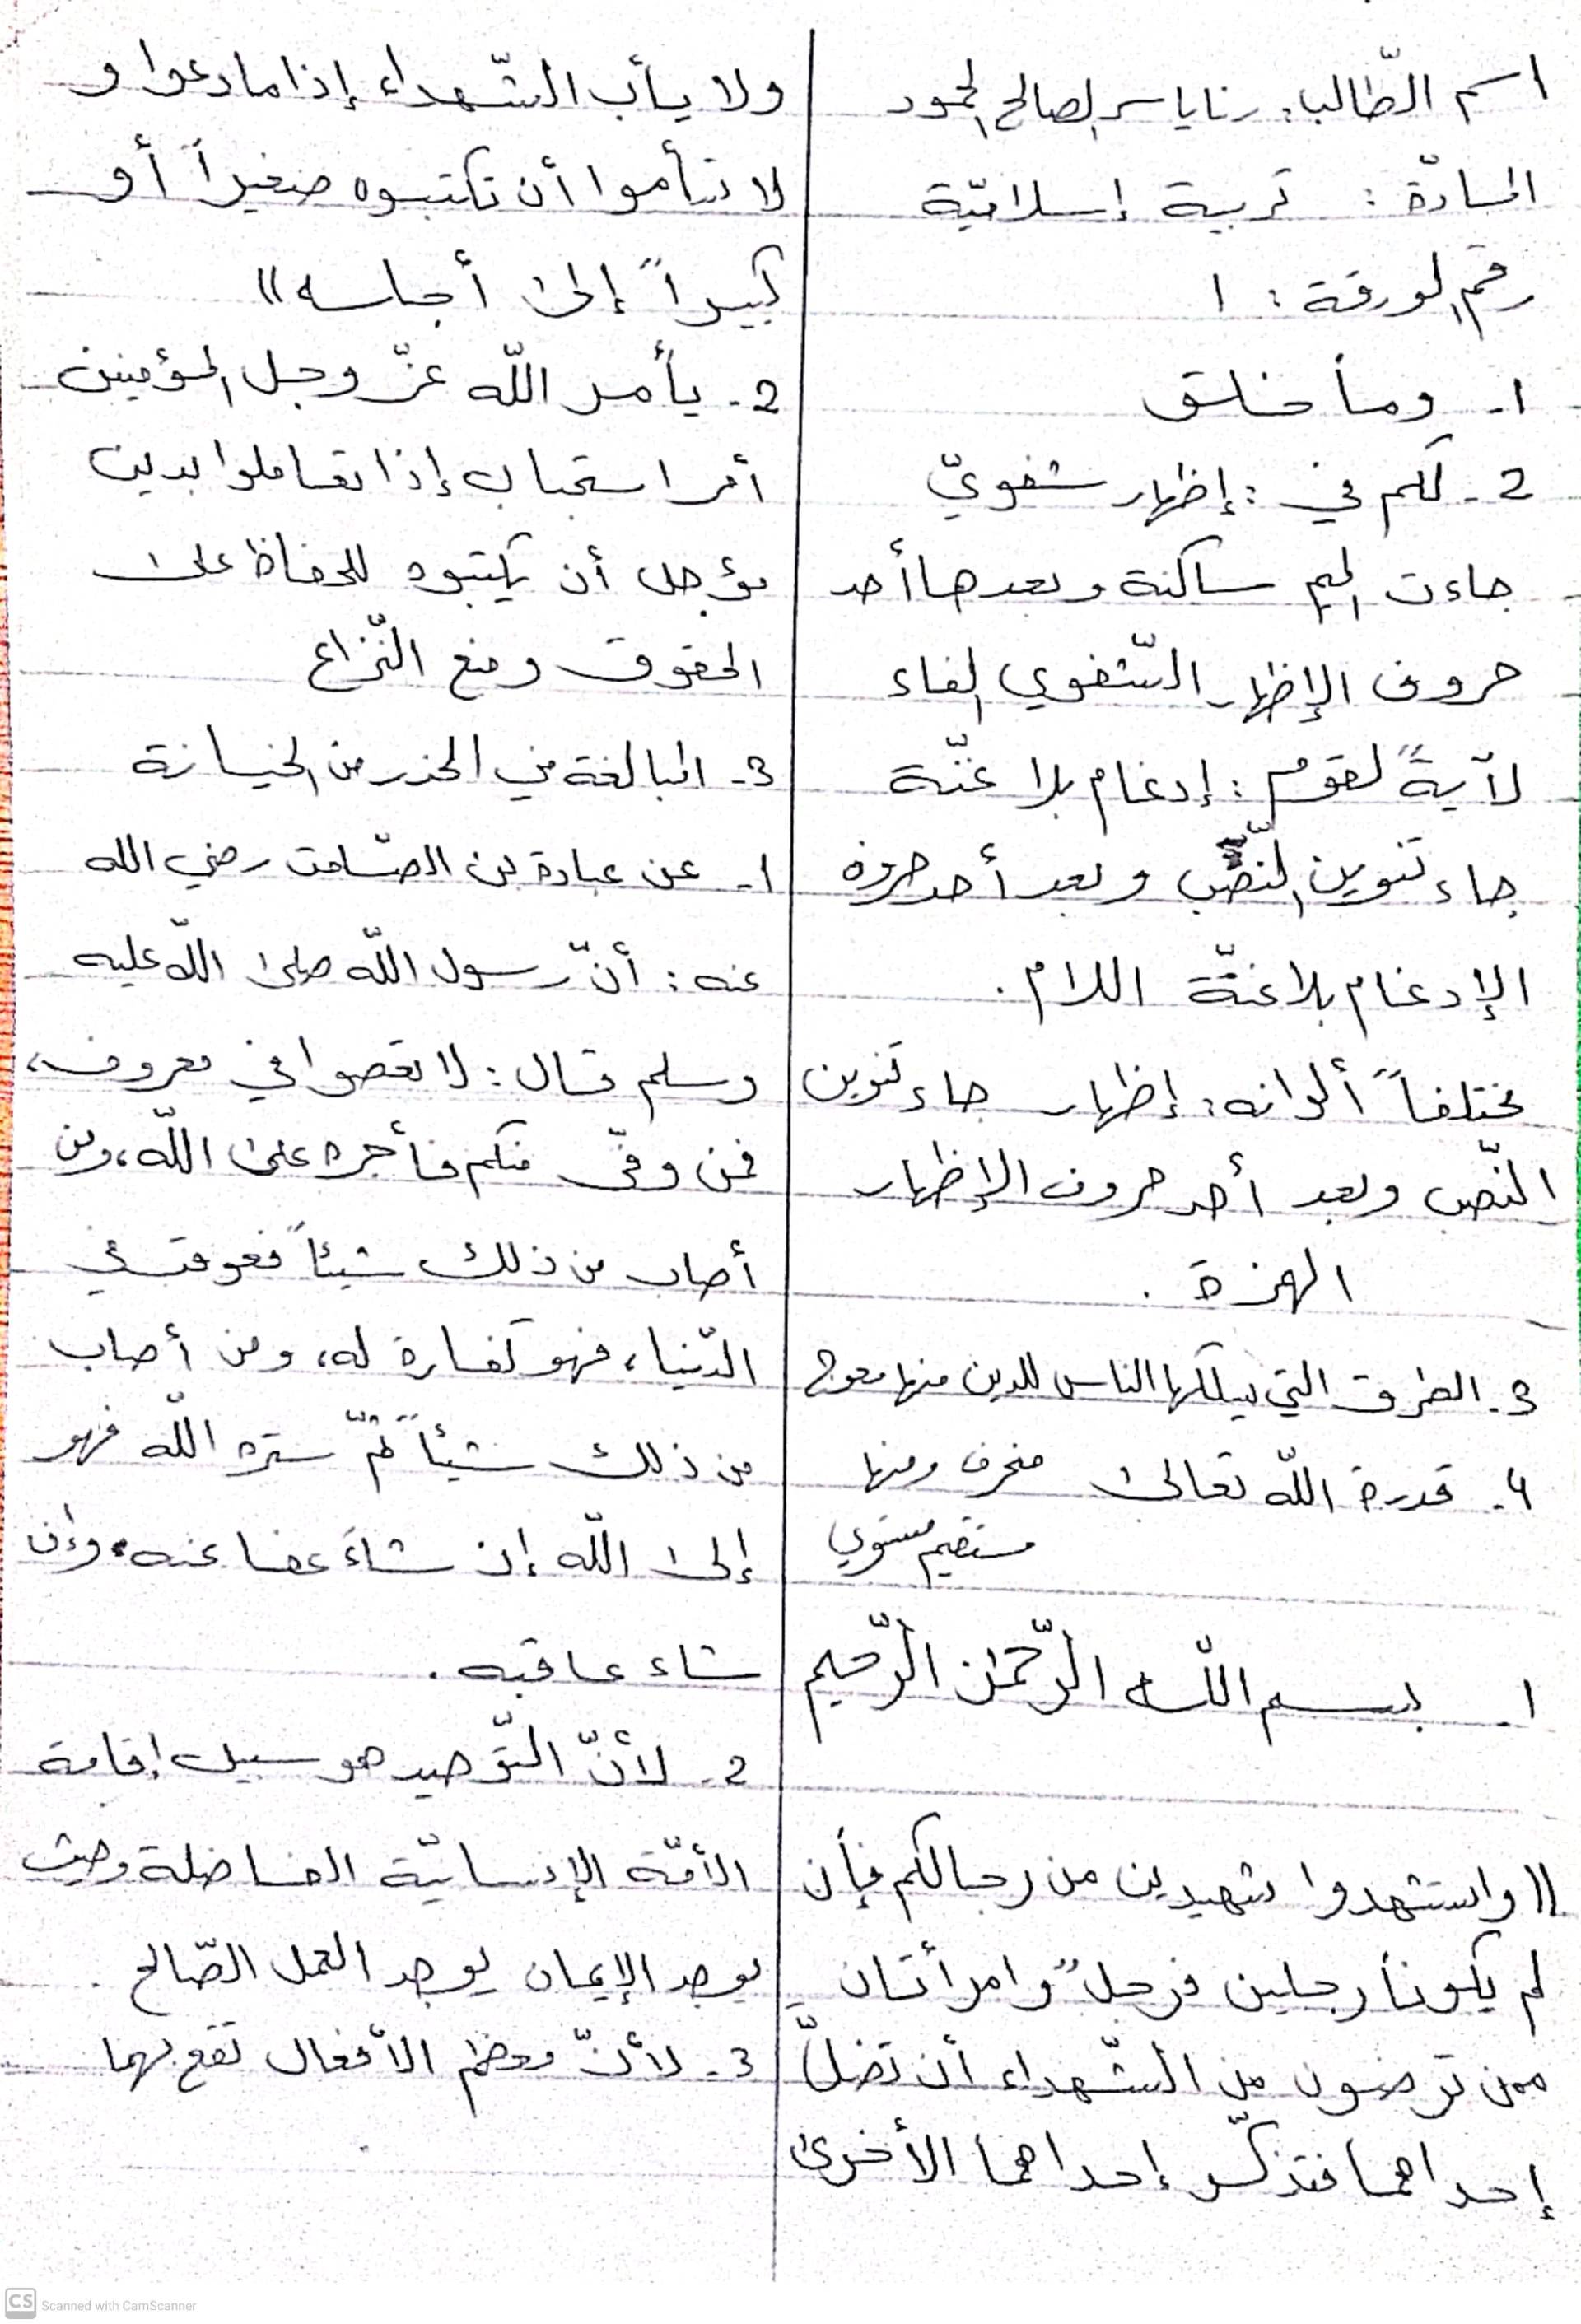 اسم الطّالب: رنا ياسر الصالح الحمود
المادّة: تربية إسلاميّة
رقم الورقة: 1
1- وما خلق
2- لكم في: إظهار شفويّ
جاءت الميم ساكنة وبعدها أحد
حروف الإظهار الشّفوي الفاء
لآيةً لقوم: إدغام بلا غنّة
جاء تنوين النّصب وبعد أحد حروف
الإدغام بلا غنّة اللام.
مختلفاً ألوانه: إظهار جاء تنوين
النّصب وبعد أحد حروف الإظهار
الهمزة.
3- الطرق التي يسلكها الناس للدين منها معوج
منحرف ومنها
مستقيم مستوي
4- قدرة اللّه تعالى
1- بسم اللّه الرّحمٰن الرّحيم
((واستشهدوا شهيدين من رجالكم فإن
لم يكونا رجلين فرجلٌ وامرأتان
ممن ترضون من الشّهداء أن تضلَّ
إحداهما فتذكّر إحداهما الأخرى
ولا يأب الشّهداء إذا ما دعوا و
لا تسأموا أن تكتبوه صغيراً أو
كبيراً إلى أجله))
2- يأمر اللّه عزّ وجل المؤمنين
أمر استحباب إذا تعاملوا بدين
مؤجل أن يكتبوه للحفاظ على
الحقوق ومنع النّزاع
3- المبالغة في الحذر من الخيانة
1- عن عبادة بن الصّامت رضي الله
عنه: أنّ رسول اللّه صلى اللّه عليه
وسلم قال: لا تعصوا في معروف،
فمن وفّى منكم فأجره على اللّه، ومن
أصاب من ذلك شيئاً فعوقب في
الدّنيا، فهو كفارة له، ومن أصاب
من ذلك شيئاً ثمّ ستره اللّه فهو
إلى اللّه إن شاء عفا عنه، وإن
شاء عاقبه.
2- لأنّ التّوحيد هو سبيل إقامة
الأمّة الإنسانيّة الفاضلة وحيث
يوجد الإيمان يوجد العمل الصّالح.
3- لأنّ معظم الأفعال تقع بهما
CS Scanned with CamScanner